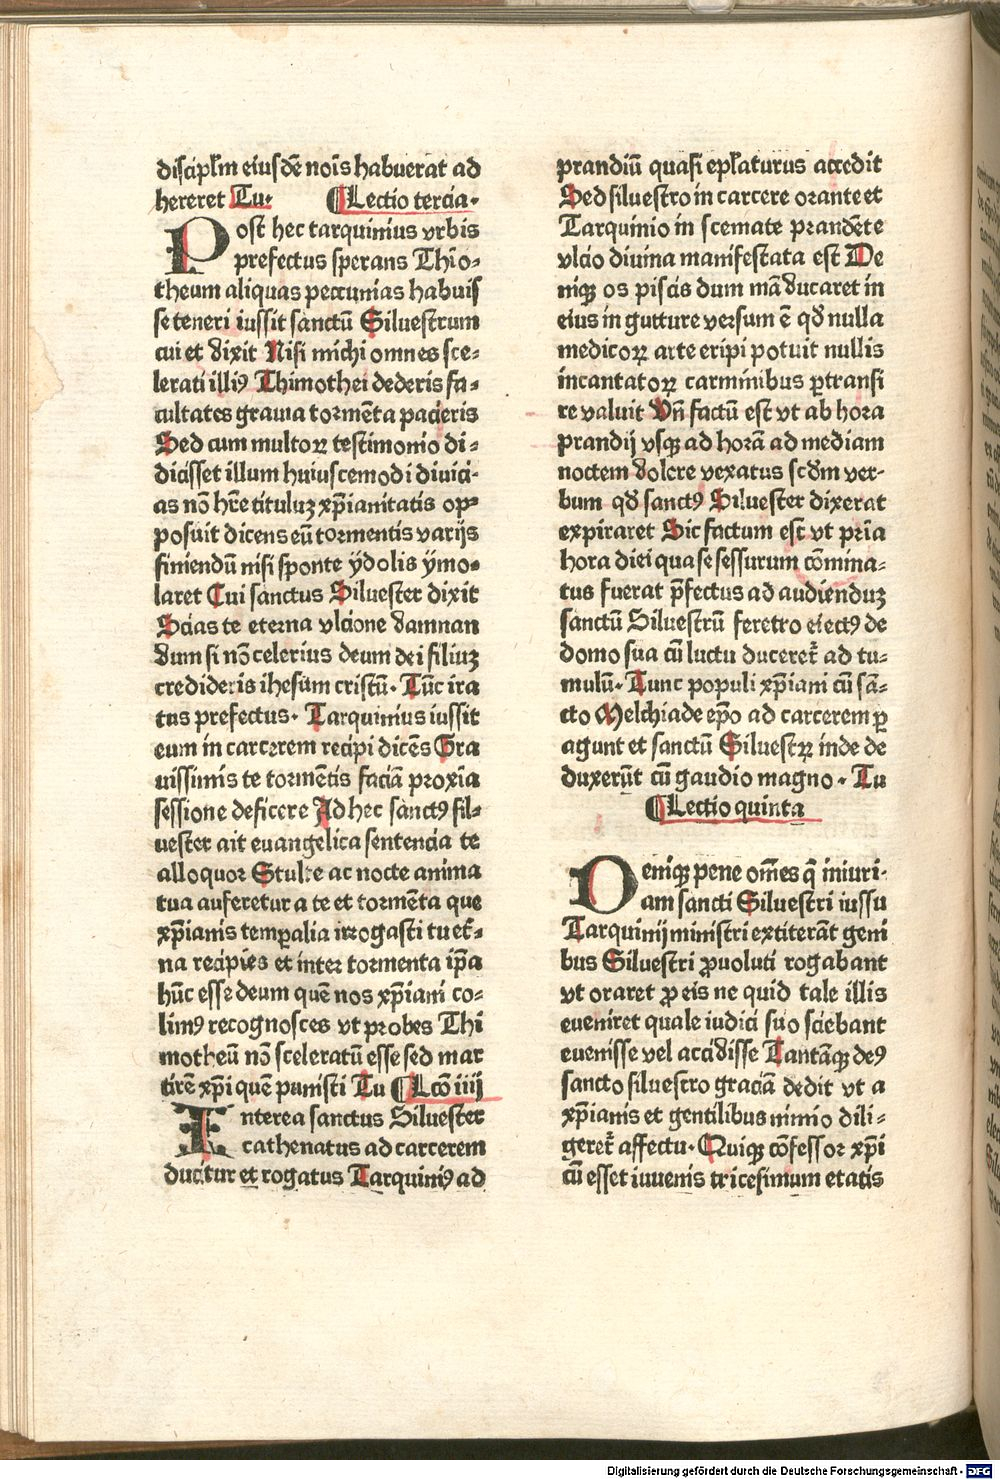 discipl̄m eiusdē noīs habuerat ad
hereret Tu· ¶Lectio tercia·
Post hec tarquinius vrbis
prefectus sperans Thio⸗
theum aliquas peccunias habuiſ
se teneri iussit sanctū Siluestrum
cui et dixit Nisi michi omnes sce⸗
lerati illiꝰ Thimothei dederis fa⸗
cultates grauia tormēta pacieris
Sed cum multoꝝ testimonio di⸗
dicisset illum huiuscemodi diuici⸗
as nō hr̄e tituluz xp̄ianitatis op⸗
posuit dicens eū tormentis varijs
finiendū nisi sponte ydolis ymo⸗
laret Cui sanctus Siluester dixit
Scias te eterna vlcione damnan
dum si nō celerius deum dei filiuz
credideris ihesum cristū· Tūc ira
tus prefectus· Tarquinius iussit
eum in carcerem recipi dicēs Gra
uissimis te tormētis faciā proxīa
sessione deficere Ad hec sanctꝰ sil⸗
uester ait euangelica sentencia te
alloquor Stulte ac nocte anima
tua auferetur a te et tormēta que
xp̄ianis temꝑalia irrogasti tu et̄⸗
na recipies et inter tormenta ip̄a
hūc esse deum quē nos xp̄iani co⸗
limꝰ recognosces vt probes Thi
motheū nō sceleratū esse sed mar
tirē xp̄i quē punisti Tu ¶Lcō iiij
Interea sanctus Siluester
cathenatus ad carcerem
ducitur et rogatus Tarquiniꝰ ad
prandiū quasi epl̄aturus accedit
Sed siluestro in carcere orante et
Tarquinio in scemate prandēte
vlcio diuina manifestata est De
niqꝫ os piscis dum māducaret in
eius in gutture versum ē qd̄ nulla
medicoꝝ arte eripi potuit nullis
incantatoꝝ carminibus ꝑtransi
re valuit Vn̄ factū est vt ab hora
prandij vsqꝫ ad horā ad mediam
noctem dolore vexatus scd̄m ver⸗
bum qd̄ sanctꝰ Siluester dixerat
expiraret Sic factum est vt prīa
hora diei qua se sessurum cōmina⸗
tus fuerat p̄fectus ad audienduz
sanctū Siluestrū feretro eiectꝰ de
domo sua cū luctu duceret̄ ad tu⸗
mulū· Tunc populi xp̄iani cū sā⸗
cto Melchiade ep̄o ad carcerem ꝑ
agunt et sanctū Siluestꝝ inde de
duxerūt cū gaudio magno· Tu
¶Lectio quinta
Deniqꝫ pene om̄es q̄ iniuri⸗
am sancti Siluestri iussu
Tarquinij ministri extiterāt geni
bus Siluestri ꝓuoluti rogabant
vt oraret ꝓ eis ne quid tale illis
eueniret quale iudici suo sciebant
euenisse vel accidisse Tantāqꝫ deꝰ
sancto siluestro graciā dedit vt a
xp̄ianis et gentilibus nimio dili⸗
geret̄ affectu· Quiqꝫ cōfessor xp̄i
cū esset iuuenis tricesimum etatis
Digitalisierung gefördert durch die Deutsche Forschungsgemeinschaft - DFG